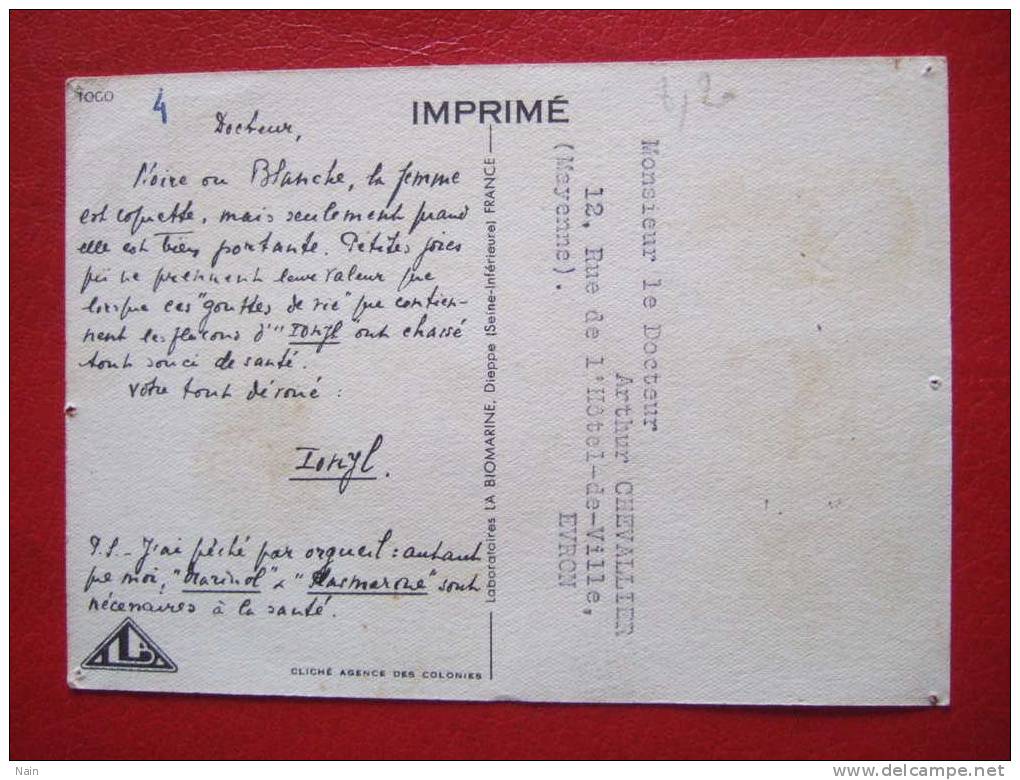 TOGO
4
IMPRIMÉ
Docteur,
Noire ou Blanche, la femme
est coquette, mais seulement quand
elle est bien portante. Petites joies
qui ne prennent leur valeur que
lorsque ces "gouttes de vie" que contien-
nent les flacons d'"Ionyl" ont chassé
tout souci de santé.
Votre tout dévoué :
Ionyl.
P.S.- J'ai péché par orgueil : autant
que moi, "Marinol" & "Plasmarine" sont
nécessaires à la santé.
CLICHÉ AGENCE DES COLONIES
Laboratoires LA BIOMARINE, Dieppe (Seine-Inférieure) FRANCE
Monsieur le Docteur
Arthur CHEVALLIER
12, Rue de l'Hôtel-de-Ville,
EVRON
(Mayenne).
Nain
www.delcampe.net